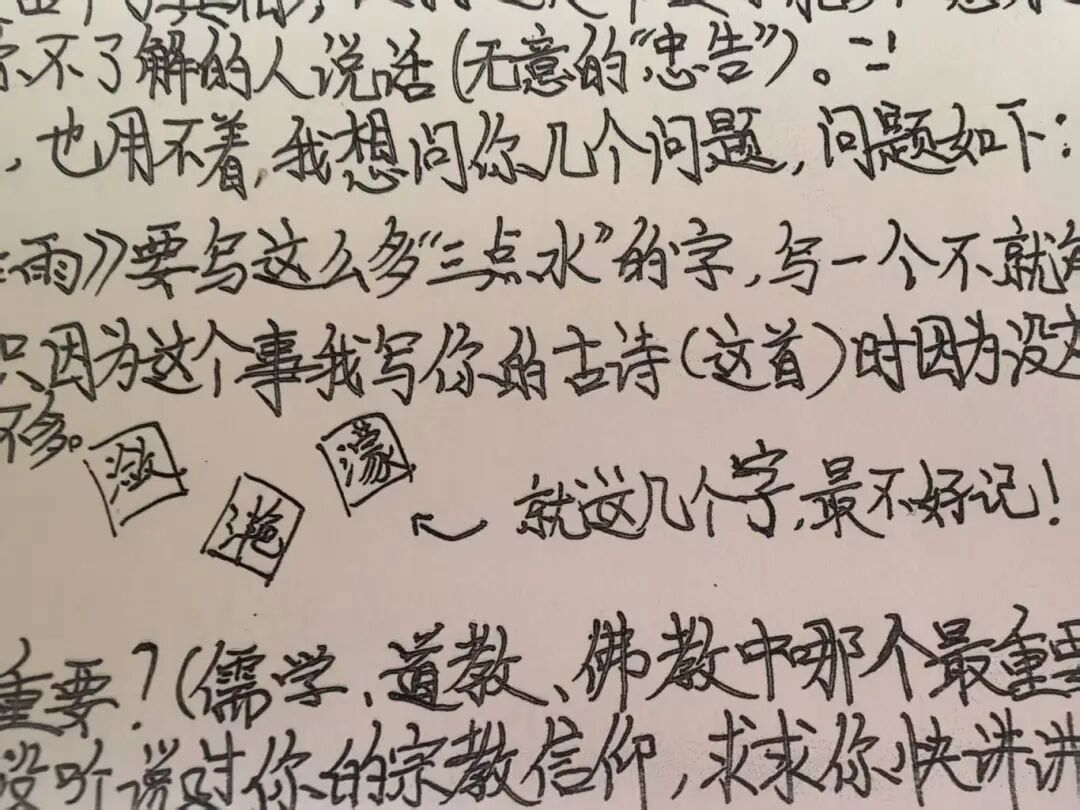 你不了解的人说话(无意的“忠告”)。
,也用不着,我想问你几个问题,问题如下:
雨》要写这么多“三点水”的字,写一个不就
只因为这个事我写你的古诗(这首)时因为没
不多。
潋
滟
濛
就这几个字,最不好记!
重要?(儒学、道教、佛教中哪个最重要
没听说过你的宗教信仰,求求你快讲讲